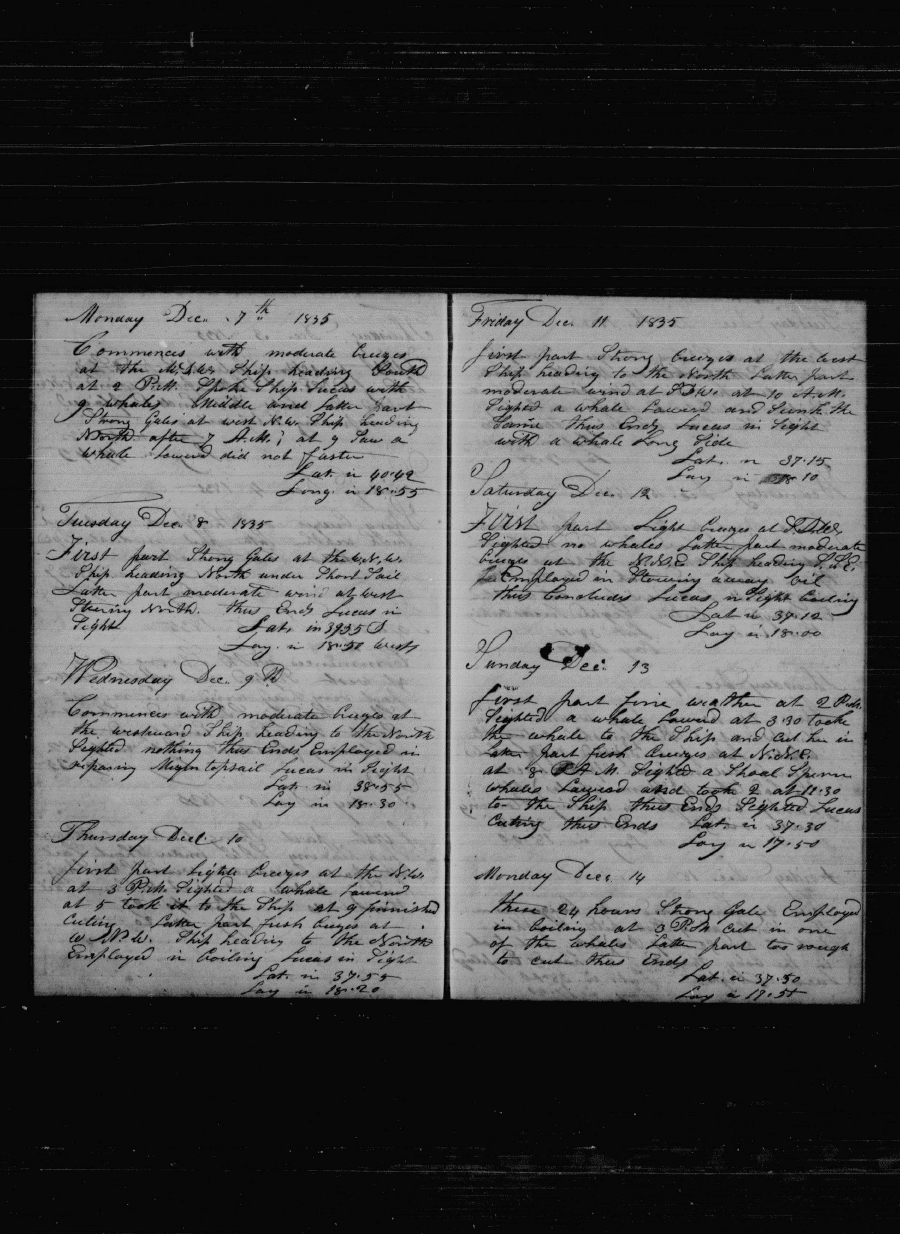 Monday Dec. 7th 1835
Commences with moderate breezes
at the N.N.W. Ship heading South
at 2 P.M. Spoke Ship Lucas with
9 whales Middle and latter part
Strong Gales at west N.W. Ship heading
North after 7 A.M. at 9 Saw a
whale Loward did not fasten
Lat. in 40.42
Long. in 18.55
Tuesday Dec. 8 1835
First part Strong Gales at the W.N.W.
Ship heading North under Short Sail
Latter part moderate wind at west
Stearing North. thus Ends Lucas in
Sight Lat. in 39.35 S
Log. in 18.50 West
Wednesday Dec. 9th
Commences with moderate breezes at
the westward Ship heading to the North
Sighted nothing thus Ends Employed in
repairing Mizen topsail Lucas in Sight
Lat. in 38.55
Log in 18.30
Thursday Dec. 10
first part Light breezes at the N.W.
at 3 P.M. Sighted a whale Loward
at 5 took it to the Ship at 9 finnished
Cuting Latter part fresh breezes at
W.N.W. Ship heading to the North
Employed in boiling Lucas in Sight
Lat. in 37.55
Log in 18.20
Friday Dec. 11 1835
first part Strong breezes at the west
Ship heading to the North Latter part
moderate wind at at 10 A.M.
Sighed a whale Loward and Sunk the
Same thus Ends Lucas in Sight
with a whale Long Side
Lat. in 37.15
Log in 18.10
Saturday Dec. 12
First part Light breezes at
Sighted no whales Latter part moderate
breezes at the N.N.E. Ship heading
Employed in Stowing away oil
thus Concludes Lucas in Sight boiling
Lat in 37.12
Log in 18.00
Sunday Dec. 13
first part fine weather at 2 P.M.
Sighted a whale Loward at 3.30 tooke
the whale to the Ship and cut her in
Latter part fresh breezes at N.N.E.
at 8 A.M. Sighted a Shoal Sperm
whales Loward and tooke 2 at 11.30
to the Ship thus Ends Sighted Lucas
Cuting thus Ends Lat. in 37.30
Log in 17.50
Monday Dec. 14
these 24 hours Strong Gale Employed
in boiling at 3 P.M. Cut in one
of the whales Latter part too rough
to cut thus Ends
Lat. in 37.50
Log in 17.50